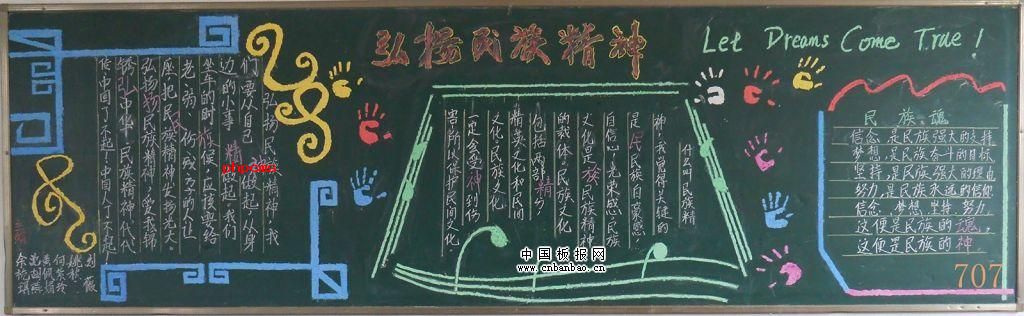 弘扬民族精神
Let Dreams Come True!
弘扬民族精神，我
们要从自己做起，从身
边的小事做起，我们
坐车的时候，应该要给
老、弱、伤残之的人让
座，把民族精神发扬光大。
弘扬民族精神，爱我锦
绣中华，民族精神代代
传，中国了不起！中国人了不起！
什么叫民族精
神，我觉得关键的
是民族自豪感、
自信心、光荣感，民族
文化是民族精神
的载体，民族文化
包括两部份，
精英文化和民间
文化，民族文化
一定会受到伤
害，所以保护民间文化。
民族魂
信念，是民族强大的支持
梦想，是民族奋斗的目标
坚持，是民族强大的理由
努力，是民族永远的信仰
信念，梦想，坚持，努力，
这便是民族的魂，
这便是民族的神。
707
中国板报网
www.cnbanbao.cn